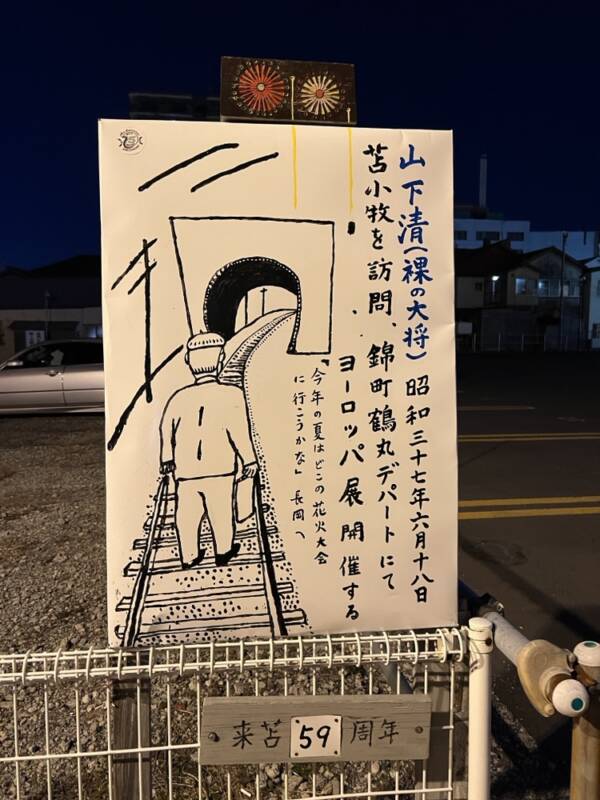 山下清（裸の大将）昭和三十七年六月十八日
苫小牧を訪問、錦町鶴丸デパートにて
ヨーロッパ展開催する
「今年の夏はどこの花火大会
に行こうかな」長岡へ
来苫59周年